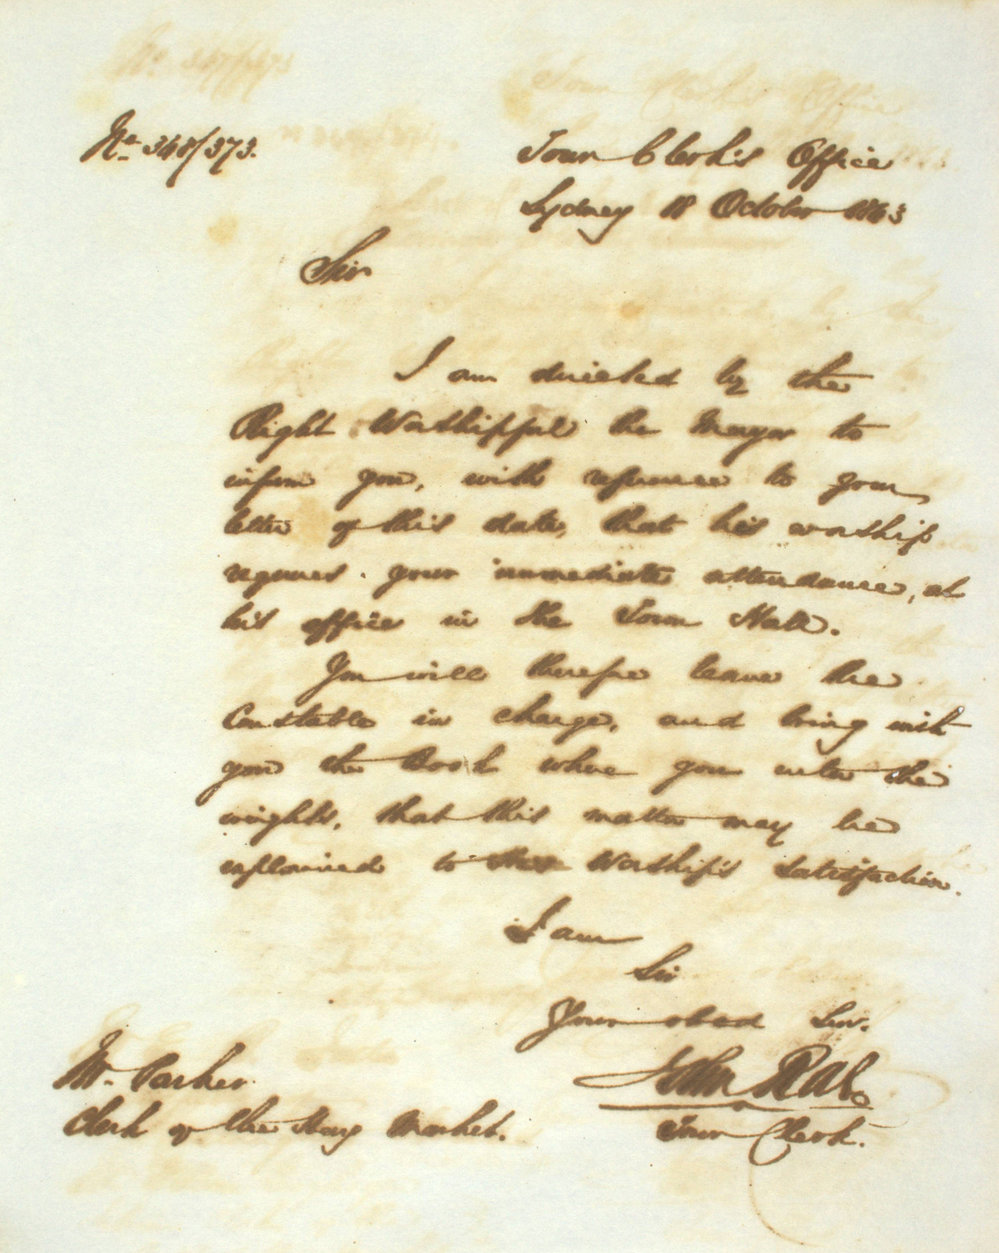 No. 348/373.
Town Clerk's Office
Sydney 18 October 1863
Sir
I am directed by the
Right Worshipful the Mayor to
inform you, with reference to your
letter of this date, that his worship
requires your immediate attendance, at
his office in the Town Hall.
You will therefore leave the
Constable in charge, and bring with
you the Book where you enter the
weights, that this matter may be
explained to his Worship's satisfaction.
I am
Sir
Your obed Serv.
John Rae
Town Clerk.
Mr. Parker
Clerk of the Hay Market.